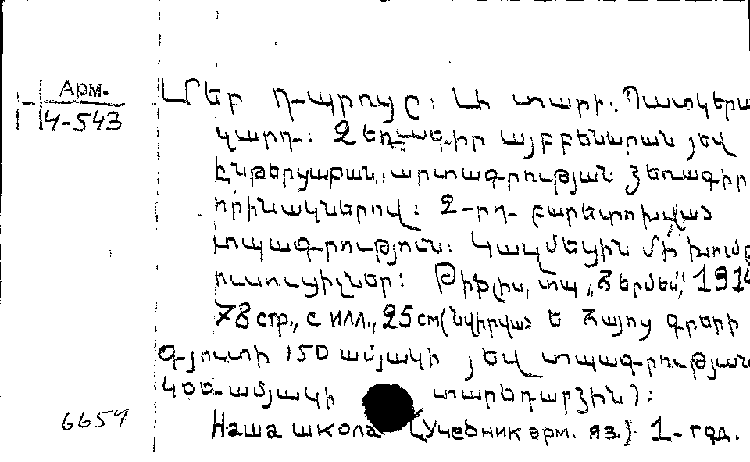 Арм.
4-543
Մեր դպրոցը: Ա տարի: Պատկերա
զարդ: Ձեռագիր այբբենարան յեվ
ընթերցարան, արտագրության ձեռագիր
որինակներով: 2-րդ բարեփոխված
տպագրություն: Կազմեցին մի խումբ
ուսուցիչներ: Թիֆլիս, տպ. „Հերմես", 191
78 стр., с илл., 25 см (նվիրված է հայոց գրերի
գյուտի 150 ամյակի յեվ տպագրության
400-ամյակի տարեդարձին):
6654
Наша школа (Учебник арм. яз.). 1-год.